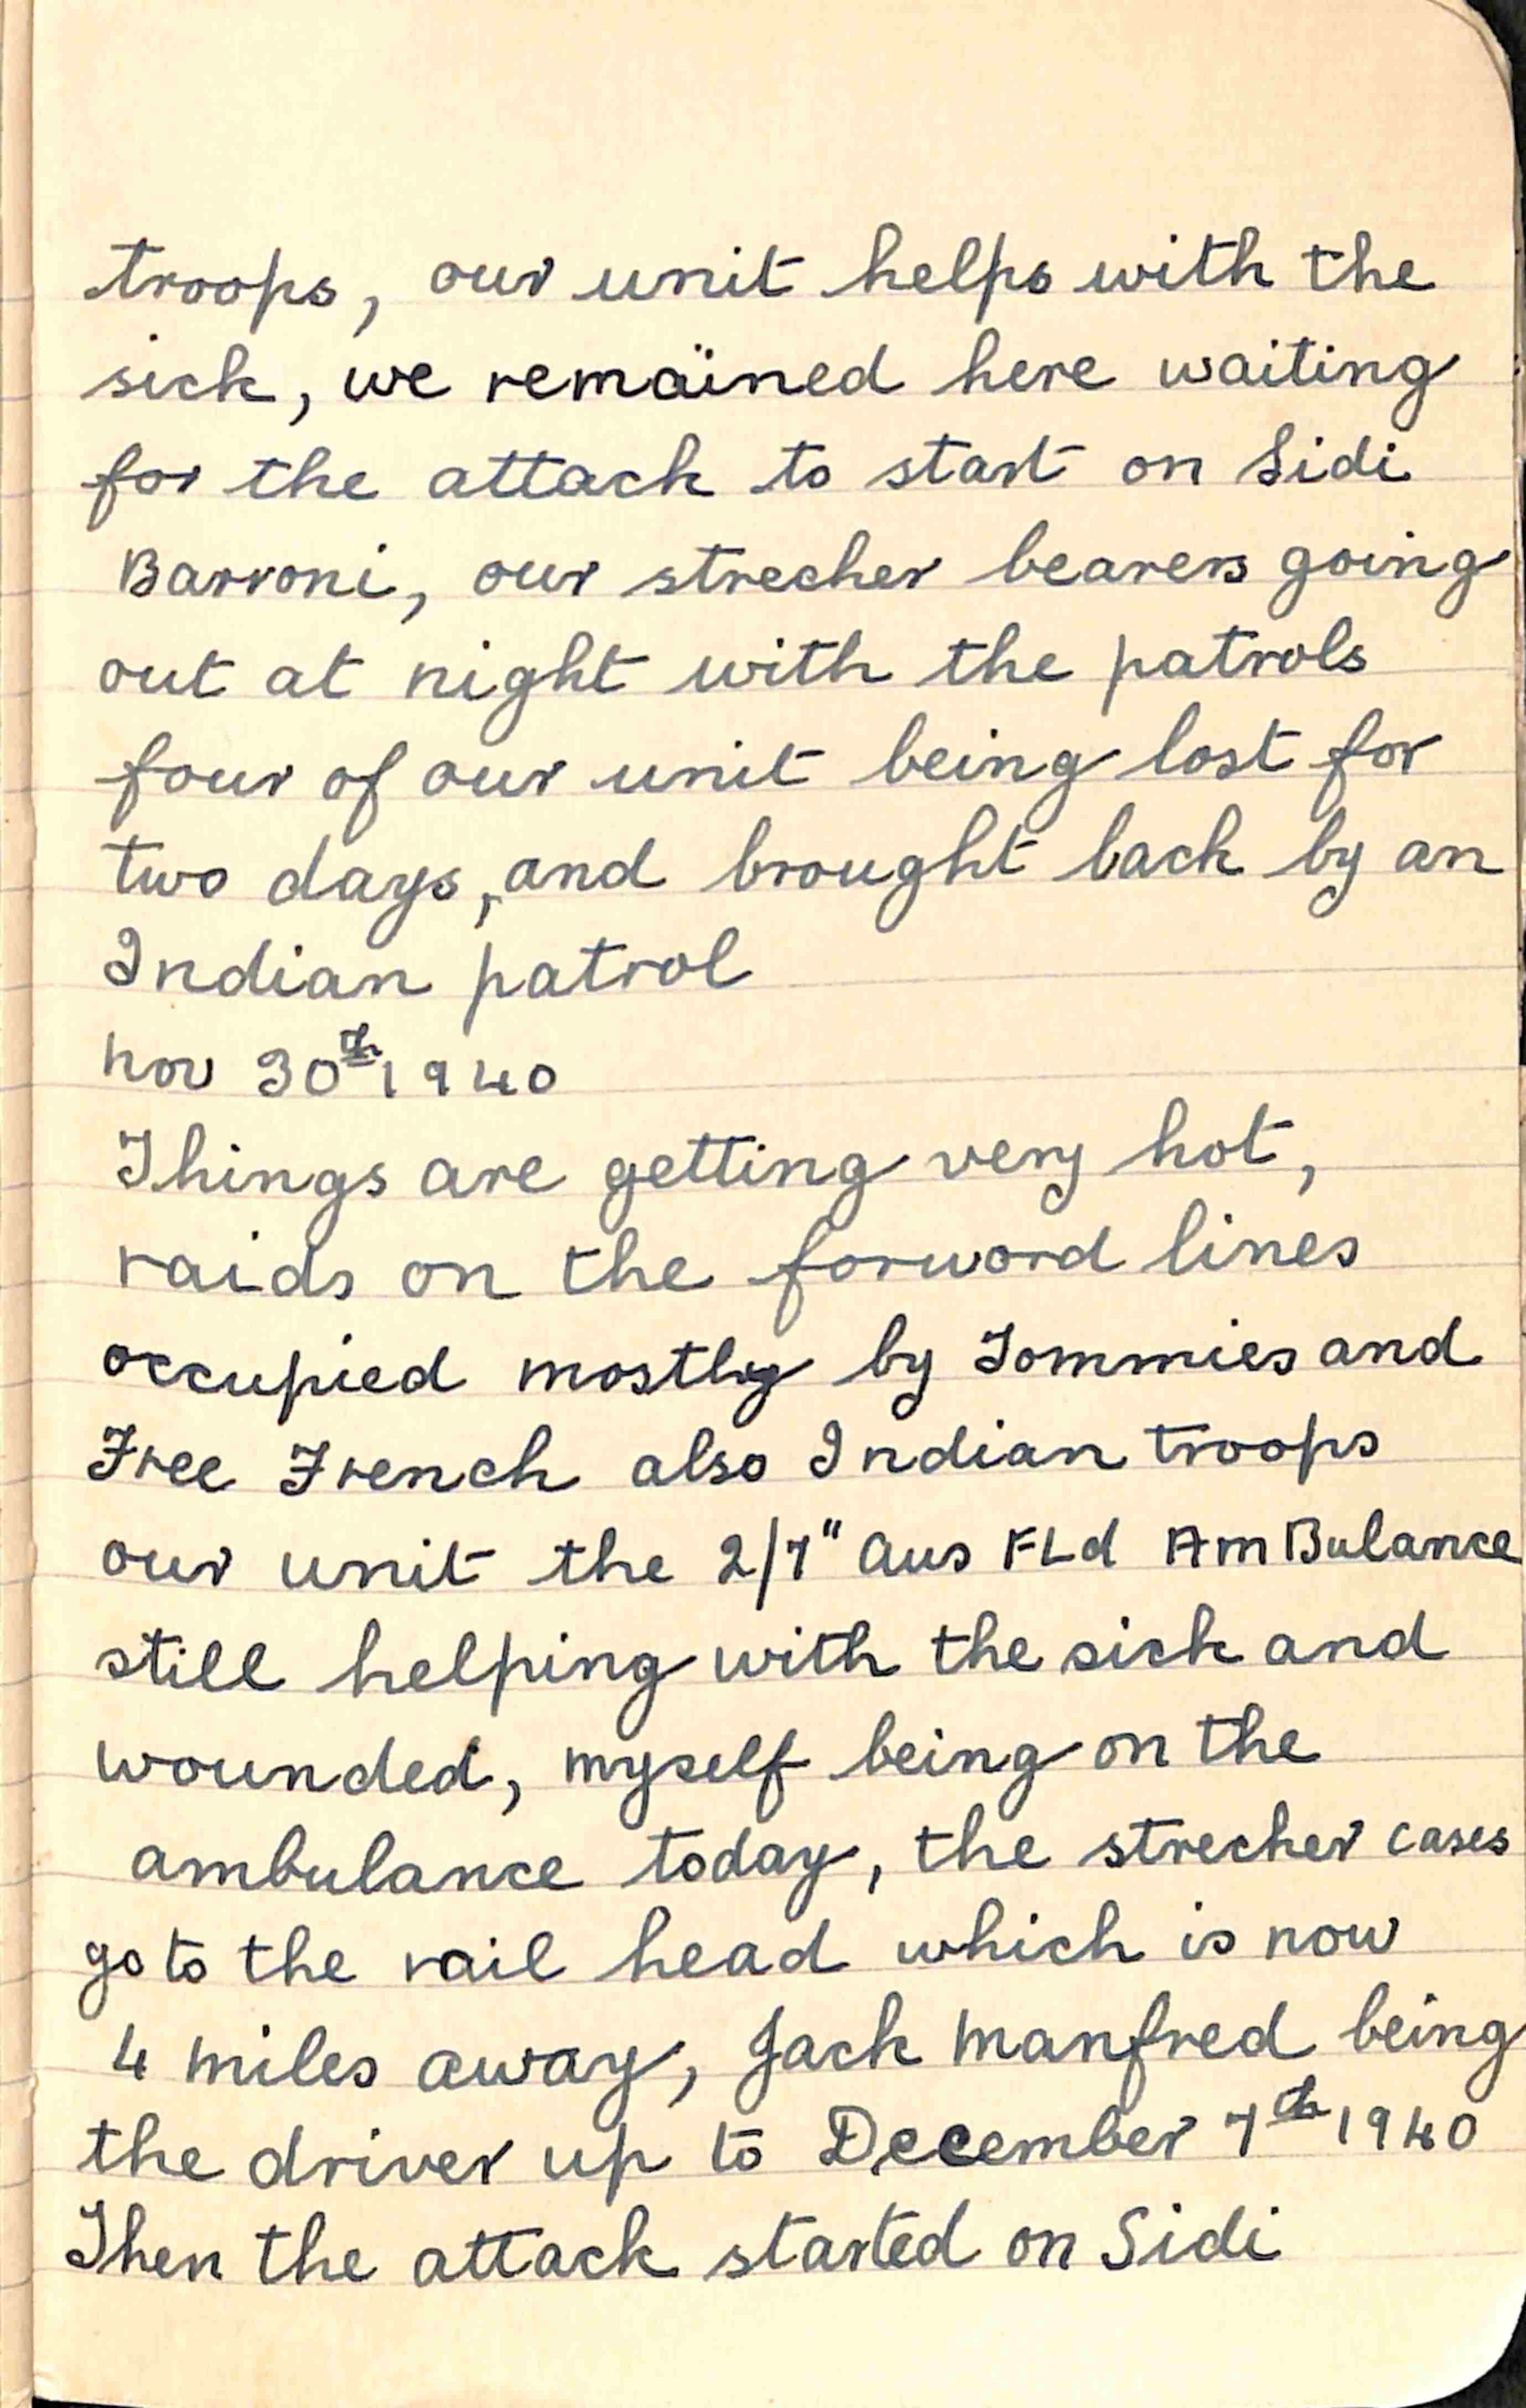 troops, our unit helps with the
sick, we remained here waiting
for the attack to start on Sidi
Barroni, our strecher bearers going
out at night with the patrols
four of our unit being lost for
two days, and brought back by an
Indian patrol
Nov 30th 1940
Things are getting very hot,
raids on the forword lines
occupied mostly by Tommies and
Free French also Indian troops
our unit the 2/7" Aus FLd AmBulance
still helping with the sick and
wounded, myself being on the
ambulance today, the strecher cases
go to the rail head which is now
4 miles away, Jack Manfred being
the driver up to December 7th 1940
Then the attack started on Sidi